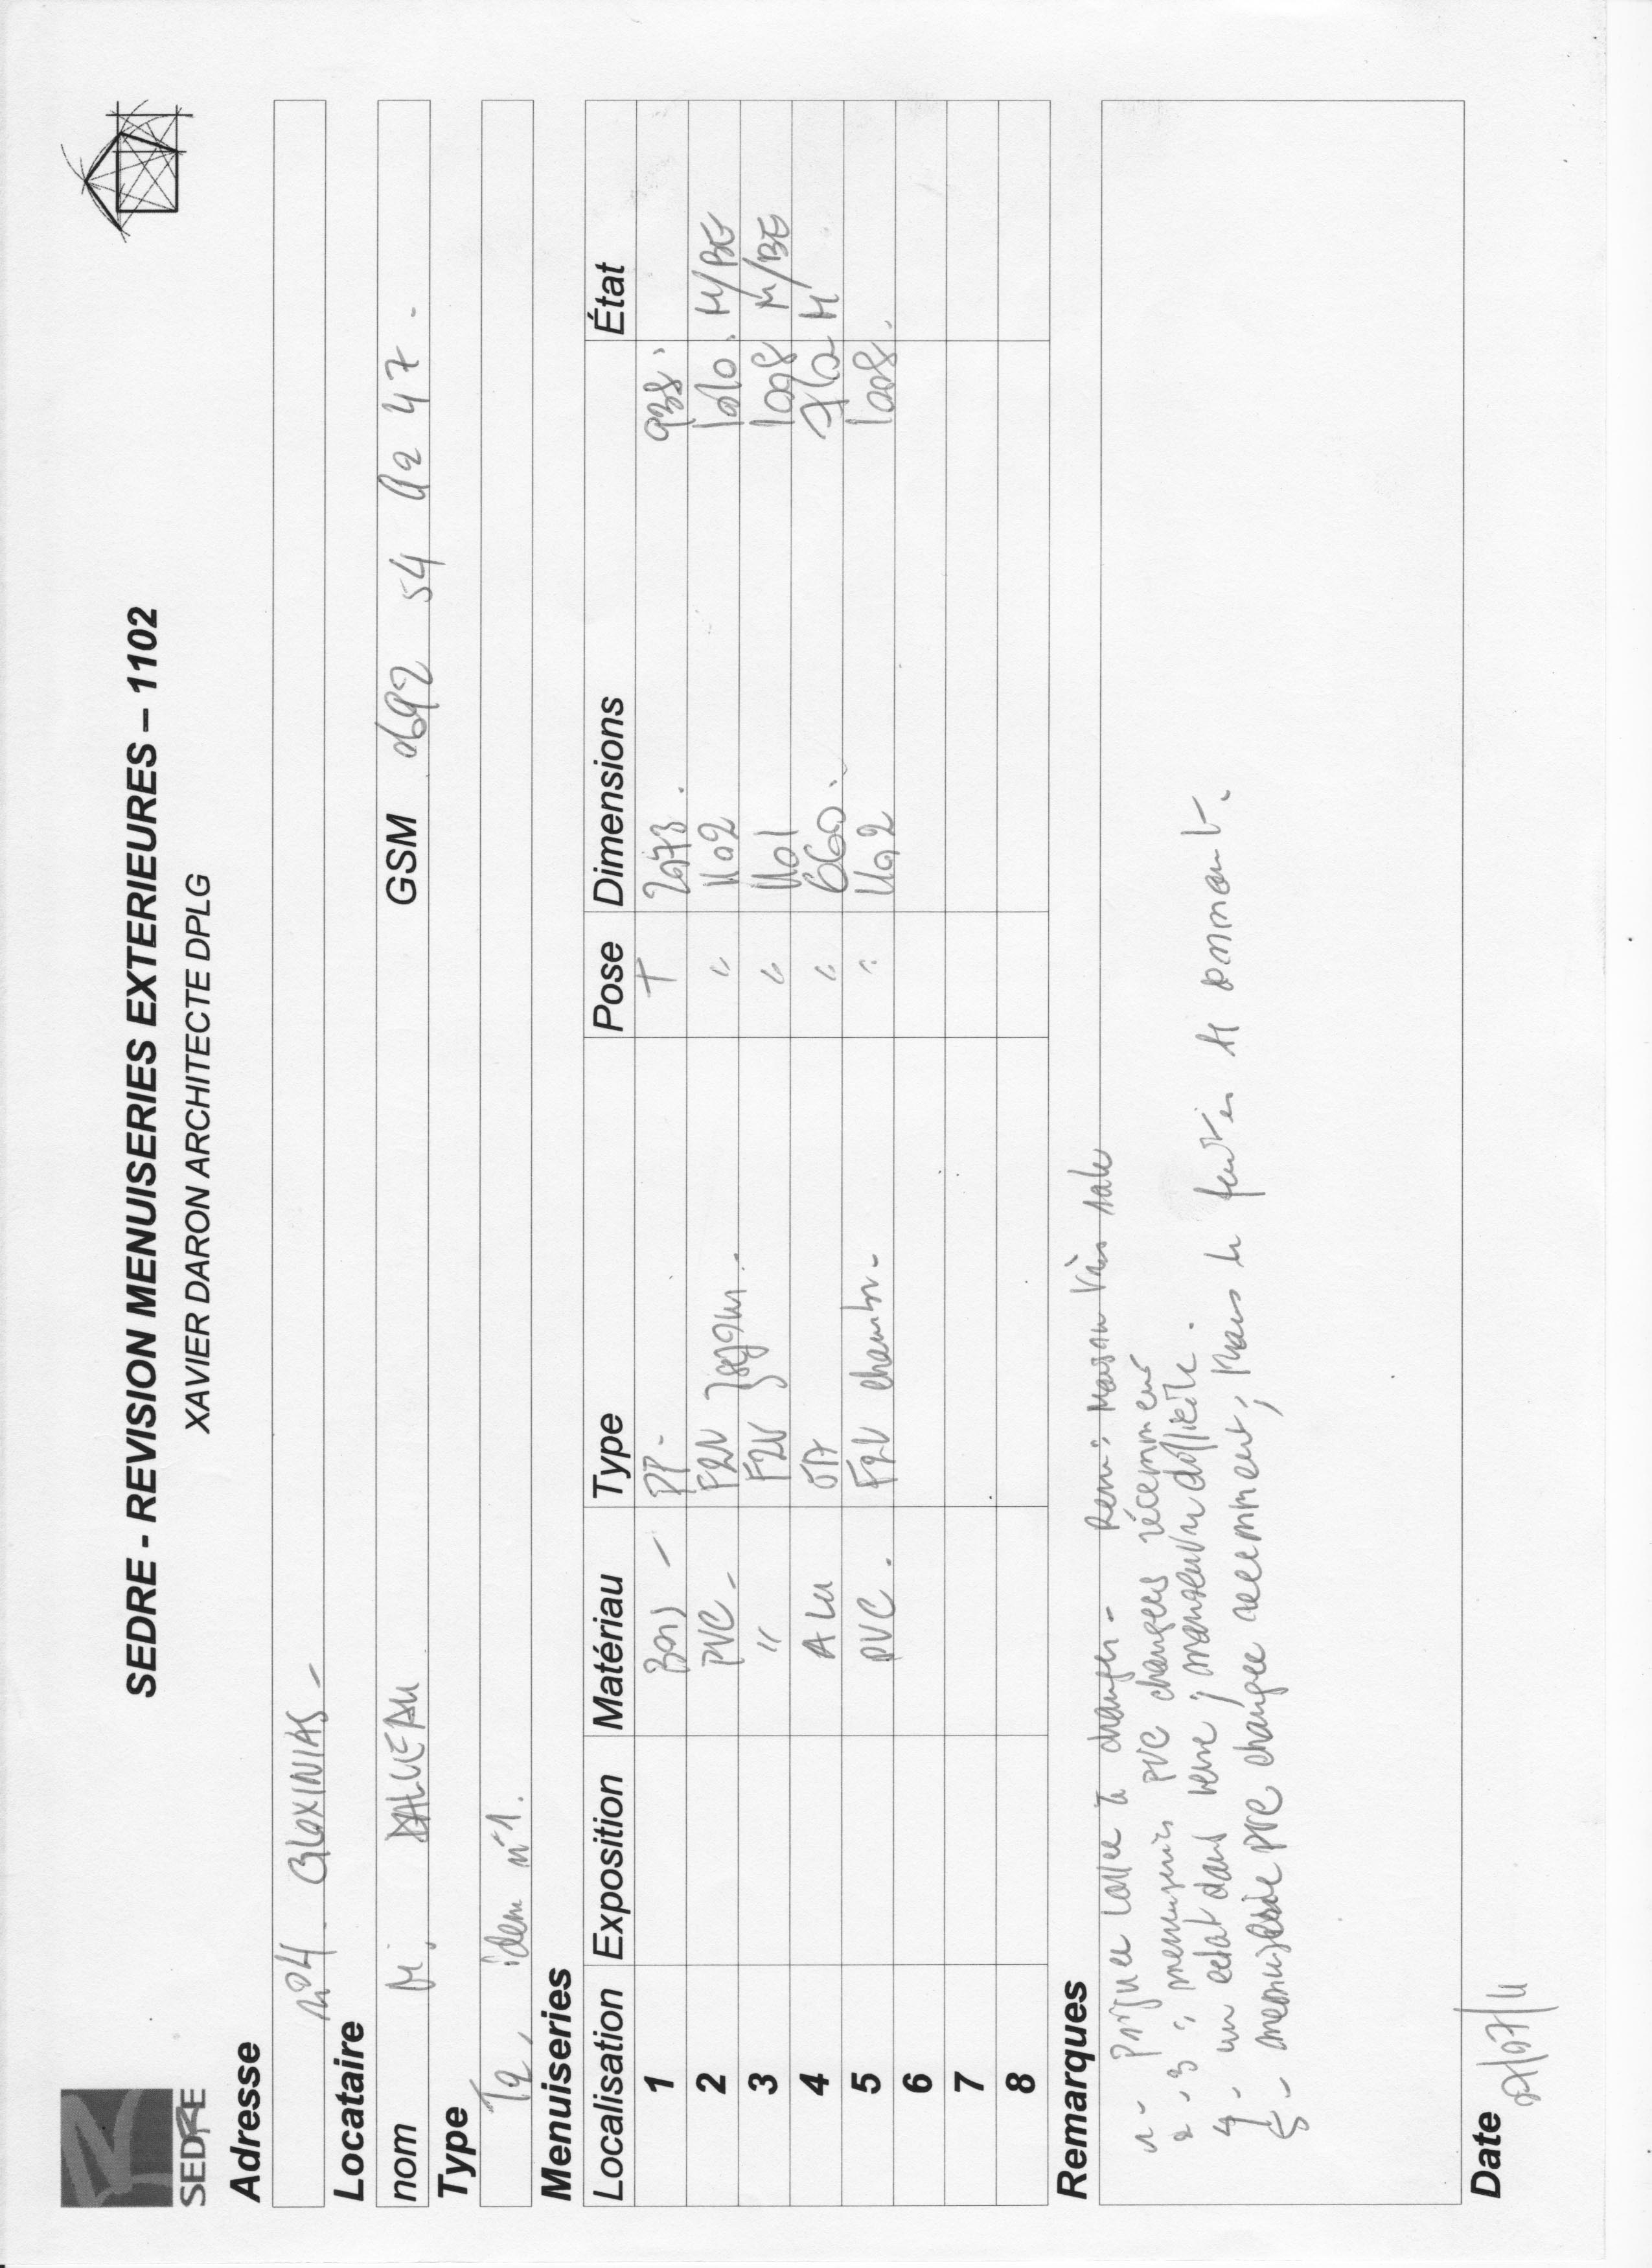 SEDRE
SEDRE - REVISION MENUISERIES EXTERIEURES – 1102
XAVIER DARON ARCHITECTE DPLG
Adresse
n°4 GLOXINIAS -
Locataire
nom M. GSM 0692 54 02 47.
Type
T2, idem n°1.
Menuiseries
Localisation Exposition Matériau Type Pose Dimensions État
1 Bois - PP- T 2073. 938.
2 PVC - F2V " 1102 1010. M/BE
3 " F2V " 1101 1008 M/BE
4 Alu " 660. 710 M
5 PVC. F2V chambr. " 1102 1008.
6
7
8
Remarques
1- cassée à changer - Rem: Maison très sale
2-3 menuiseries PVC changées récemment
4- un éclat dans verre; manoeuvre difficile.
5- menuiserie PVC changée récemment; Mais
Date